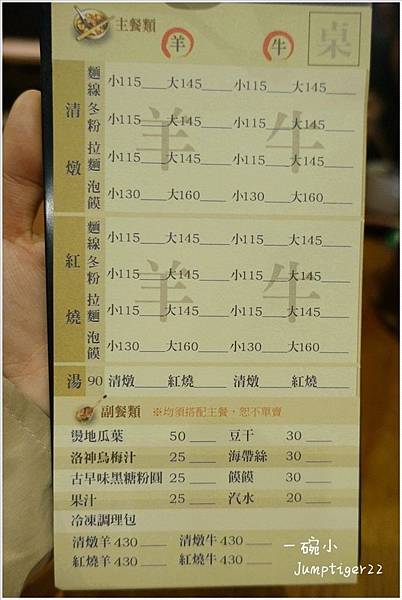 主餐類 羊 牛 桌
清燉 羊 牛
麵線 小115___大145___ 小115___大145___
冬粉 小115___大145___ 小115___大145___
拉麵 小115___大145___ 小115___大145___
泡饃 小130___大160___ 小130___大160___
紅燒 羊 牛
麵線 小115___大145___ 小115___大145___
冬粉 小115___大145___ 小115___大145___
拉麵 小115___大145___ 小115___大145___
泡饃 小130___大160___ 小130___大160___
湯 90 清燉___ 紅燒___ 清燉___ 紅燒___
副餐類 ※均須搭配主餐，恕不單賣
燙地瓜葉 50 ___ 豆干 30 ___
洛神烏梅汁 25 ___ 海帶絲 30 ___
古早味黑糖粉圓 25 ___ 饃饃 30 ___
果汁 25 ___ 汽水 20 ___
冷凍調理包
清燉羊 430 ___ 清燉牛 430 ___
紅燒羊 430 ___ 紅燒牛 430 ___
一碗小
Jumptiger22